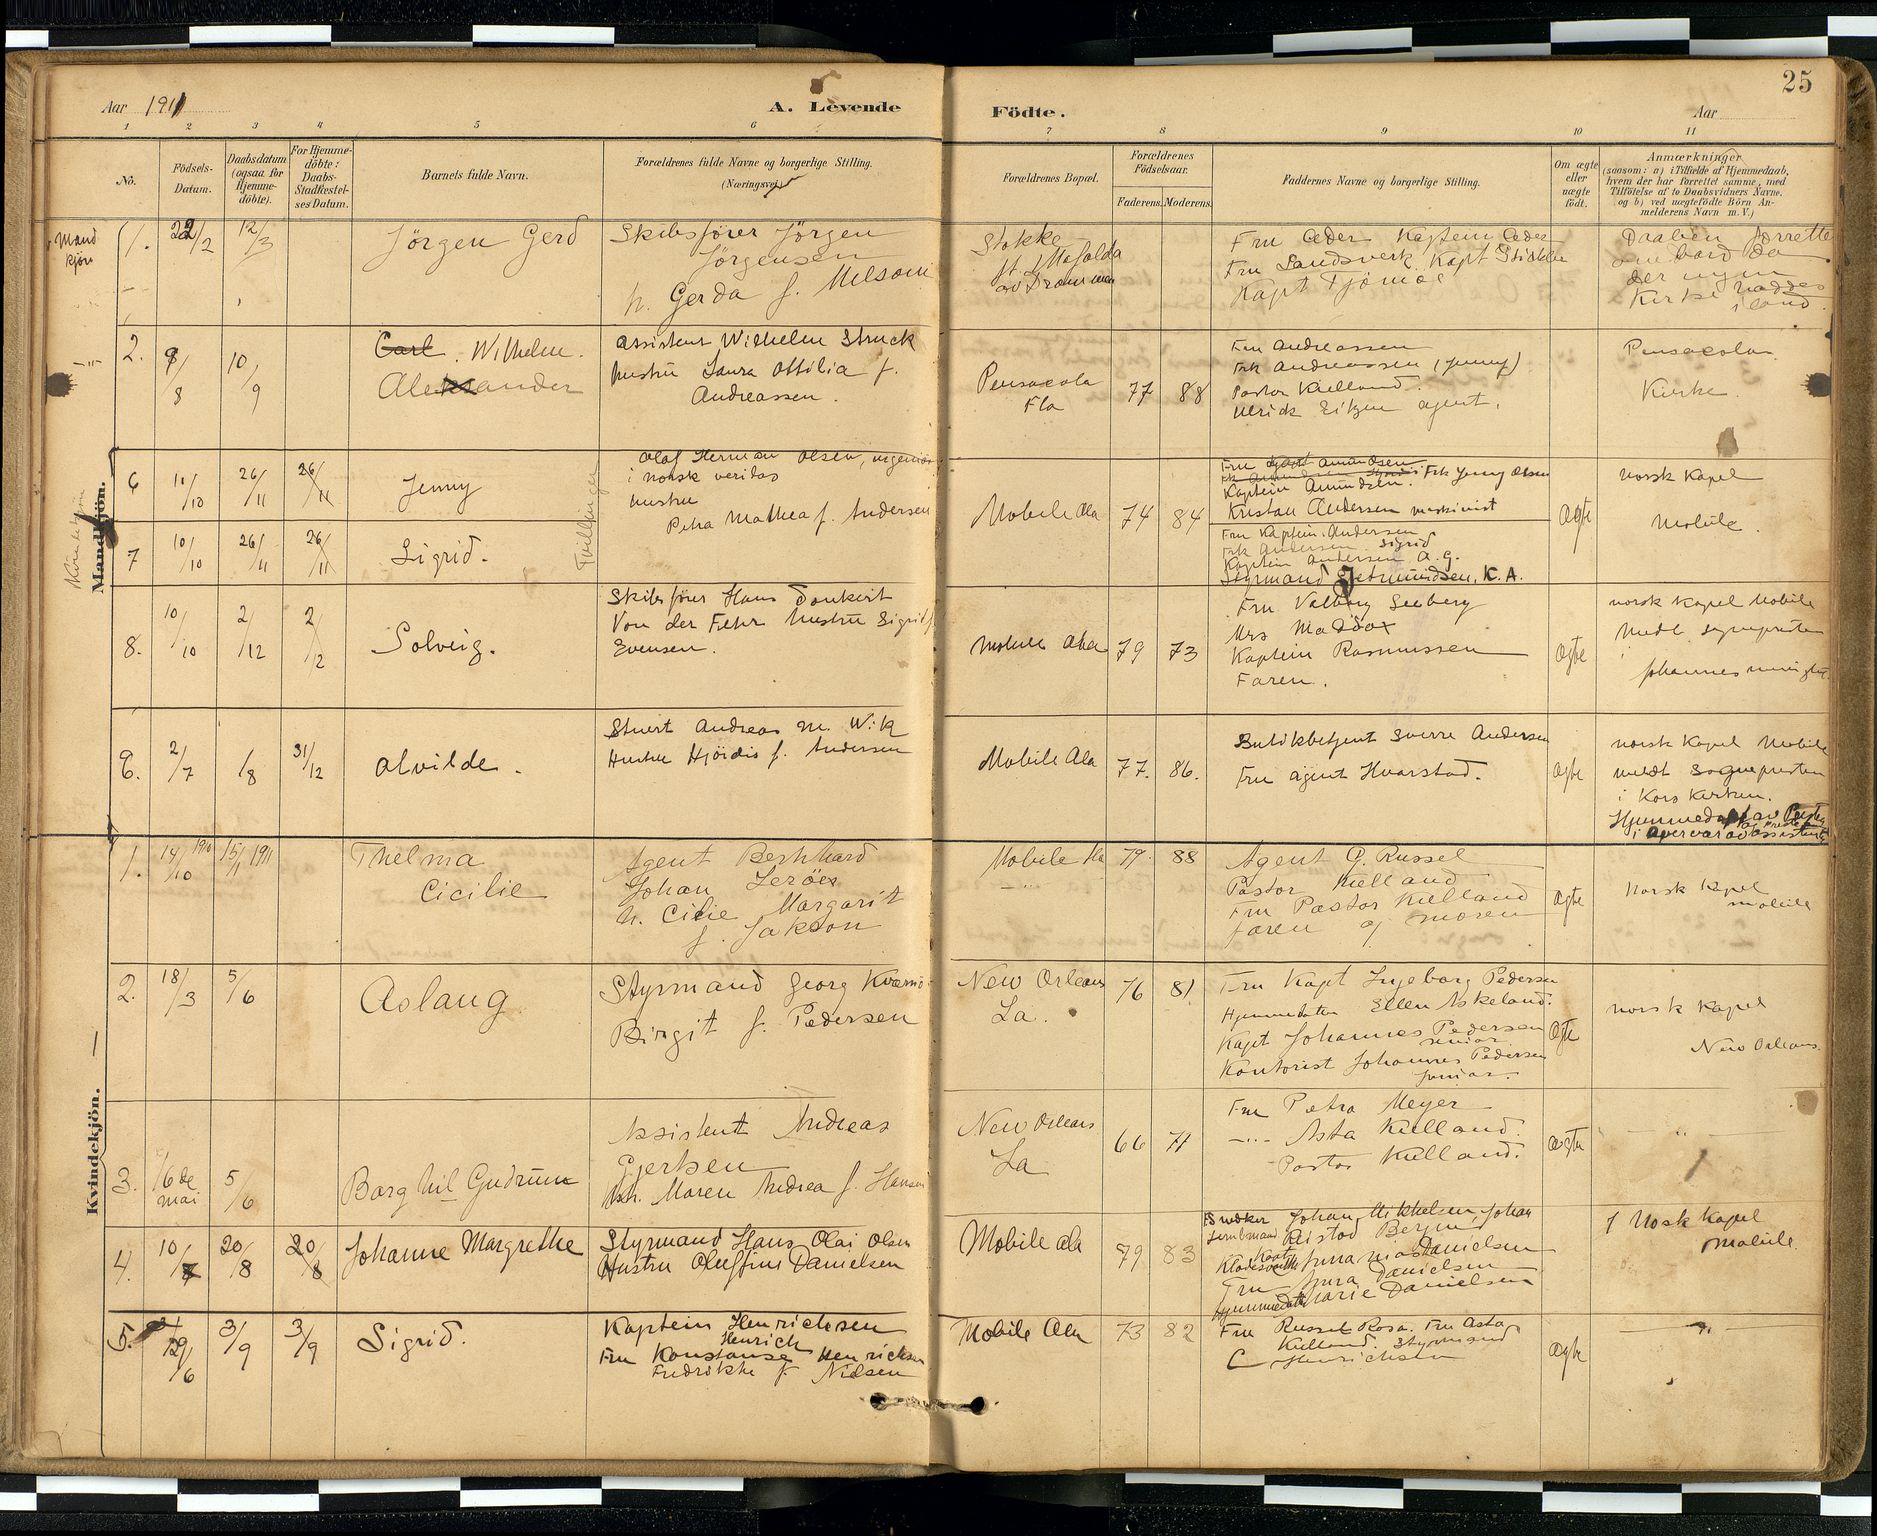 Aar 1911
A. Levende
Födte.
Aar
25
1 2 3 4 5 6 7 8 9 10 11
No.
Födsels-
Datum.
Daabsdatum
(ogsaa for
Hjemme-
döbte).
For Hjemme-
döbte:
Daabs-
Stadfæstel-
ses Datum.
Barnets fulde Navn.
Forældrenes fulde Navne og borgerlige Stilling.
(Næringsvej)
Forældrenes Bopæl.
Forældrenes
Födselsaar.
Faderens. Moderens.
Faddernes Navne og borgerlige Stilling.
Om ægte
eller
uægte
födt.
Anmærkninger
(saasom: a) i Tilfælde af Hjemmedaab,
hvem der har forrettet samme, med
Tilföielse af to Daabsvidners Navne,
og b) ved uægtefödte Börn An-
melderens Navn m. V.)
Mand
kjön
1. 22/2 12/3
Jörgen Gerd
Skibsförer Jörgen
Jörgensen
h. Gerda f. Melsom
Stokke
av Drammen
Fru Ceder Kaptein Ceder
Fru Sandsverk Kapt
Kapt Tjömöe
Daaben forrettet
ombord da
der ingen
Kirke haddes
i land.
2. 9/8 10/9
Carl. Wilhelm.
Alexander
Assistent Wilhelm Struck
hustru Laura Ottilia f.
Andreassen.
Pensacola
Fla
77 88
Fru Andreassen
Frk Andreassen (Jenny)
Pastor Kielland.
Ulrick Eitzen agent.
Pensacola
Kirke.
Kvindekjön
Mandkjön.
6 10/10 26/11 26/11
Jenny
Tvillinger
Olaf Herman Olsen, ingeniör
i norsk veritas
hustru
Petra Mathea f. Andersen
Mobile Ala
74 84
Fru Amundsen
Kaptein Amundsen. Frk Jenny Olsen
Kristan Andersen maskinist
Ægte
norsk Kapel
Mobile.
7 10/10 26/11 26/11
Sigrid.
Fru Kaptein Andersen
Frk Andersen Sigrid
Kaptein Andersen A. G.
Styrmand Gjetmundsen, K. A.
8. 10/10 2/12 2/12
Solveig.
Skibsförer Hans Donkert
Von der Fehr hustru Sigrid f.
Evensen.
Mobile Ala
79 73
Fru Valborg Seeberg
Mrs Maddox
Kaptein Rasmussen
Faren.
Ægte
norsk Kapel Mobile
Medt. sogneprsten
i Johannes menighet.
9. 2/7 /8 31/12
Alvilde.
Stuert Andreas M. Wik
Hustru Hjördis f. Andersen
Mobile Ala
77. 86.
Butikbetjent Sverre Andersen
Fru agent Hvarstad.
Ægte
norsk Kapel Mobile
meldt Sogneprsten
i Kors Kirken.
Kvindekjön.
1. 14/10 1910 15/1 1911
Thelma
Cicilie
Agent Bernhard
Johan Leröex
h. Cilie Margarit
f. Jakson
Mobile Ala
79. 88
Agent G. Russel
Pastor Kielland
Fru Pastor Kielland
faren og moren
Ægte
Norsk Kapel
Mobile
2. 18/3 5/6
Aslaug
Styrmand Georg Kvarnö
Birgit f. Pedersen
New Orleans
La.
76 81
Fru Kapt Ingeborg Pedersen
Hjemmedatter Ellen Askeland.
Kapt Johannes Pedersen
senior
Kontorist Johannes Pedersen
junior.
Ægte
norsk Kapel
New Orleans.
3. 16de
mai 5/6
Borghil Gudrun
Assistent Andreas
Gjertsen
h. Maren Andrea f. Hansen
New Orleans
La
66 71
Fru Petra Meyer
-"- Asta Kielland.
Pastor Kielland.
ægte
- " -
4. 10/7 20/8 20/8
Johanne Margrethe
Styrmand Hans Olai Olsen
Hustru Oleffine Danielsen
Mobile Ala
79 83
Snedker Johan Mikkelsen Johan
Danielsen
Fru Anna Danielsen
Hjemmedatter Marie Danielsen
i Norsk Kapel
Mobile.
5. 29/6 3/9 3/9
Sigrid.
Kaptein Henricksen
Henrich
Fru Konstanse Henricksen
Fredrikke f. Nielsen
Mobile Ala
73 82
Fru Russel Rosa. Fru Asta
Kielland. Styrmand
C Henrichsen
Ægte